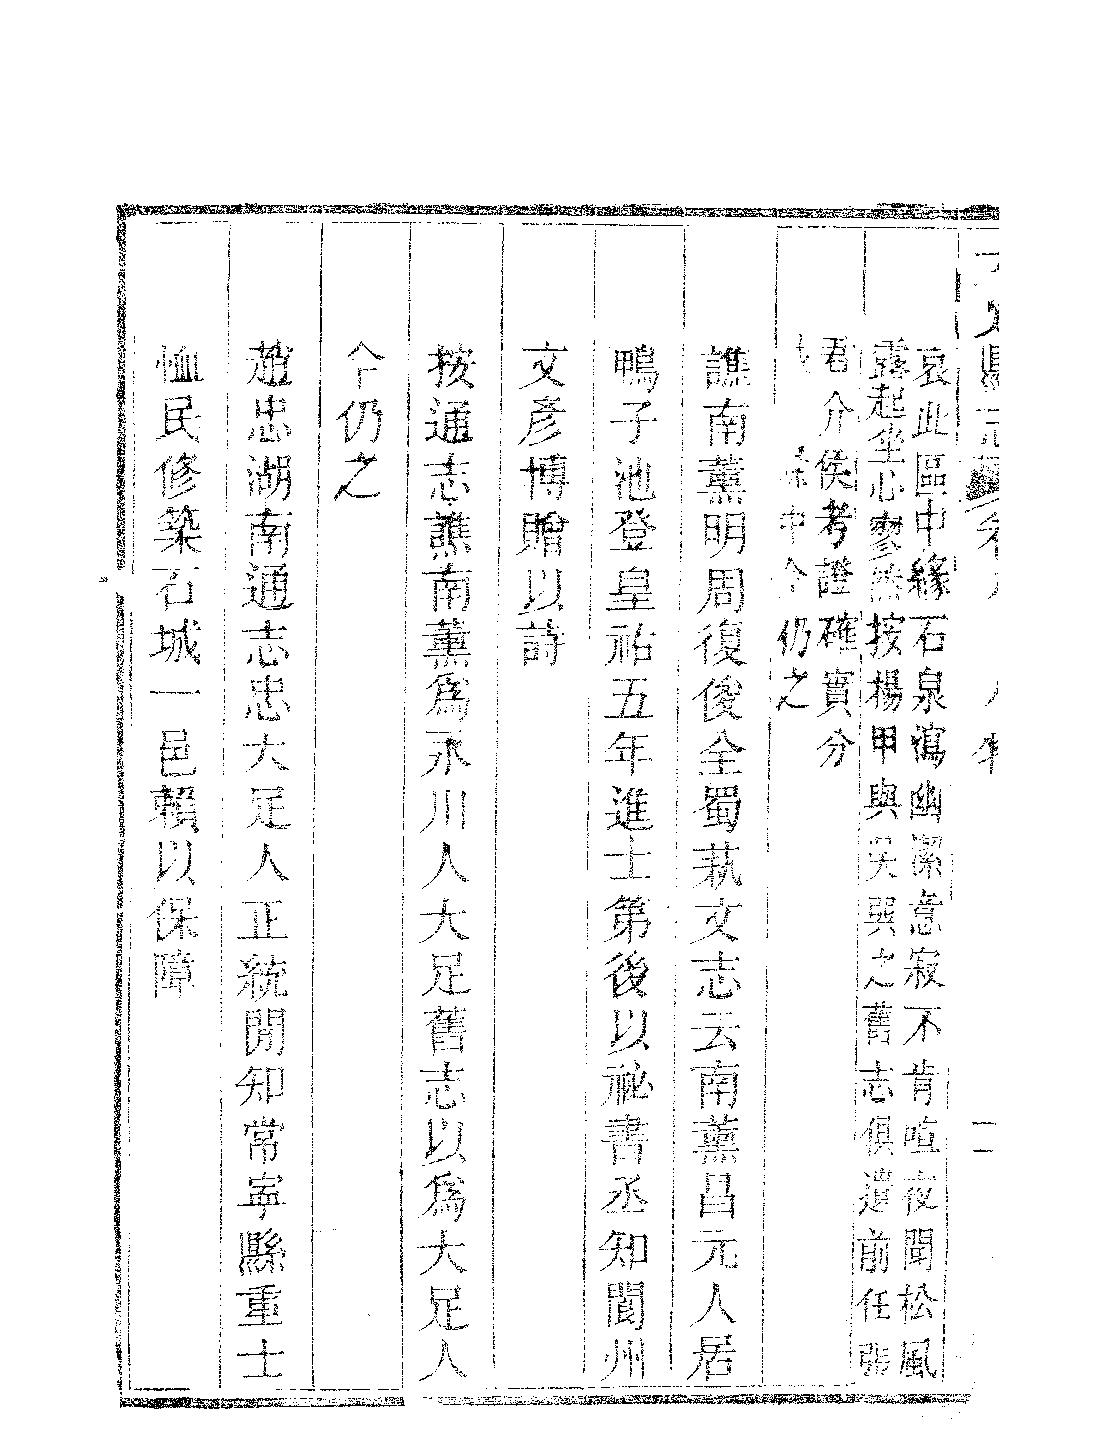 哀此區中緣石泉瀉幽潔意寂不肯喧夜聞松風
露起坐心寥然按楊甲與吳巽之舊志俱遺前任張
君介侯考證確實分
中今仍之
譙南薰明周復俊全蜀蓺文志云南薰昌元人居
鴨子池登皇祐五年進士第後以祕書丞知閬州
文彥博贈以詩
按通志譙南薰爲永川人大足舊志以爲大足人
今仍之
趙忠湖南通志忠大足人正統閒知常寧縣重士
恤民修築石城一邑賴以保障